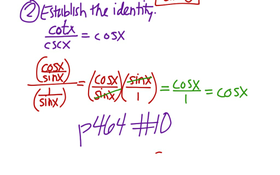 ② Establish the identity.
cotx/cscx = cosx
(cosx/sinx)/(1/sinx) = (cosx/sinx)(sinx/1) = cosx/1 = cosx
p464 #10